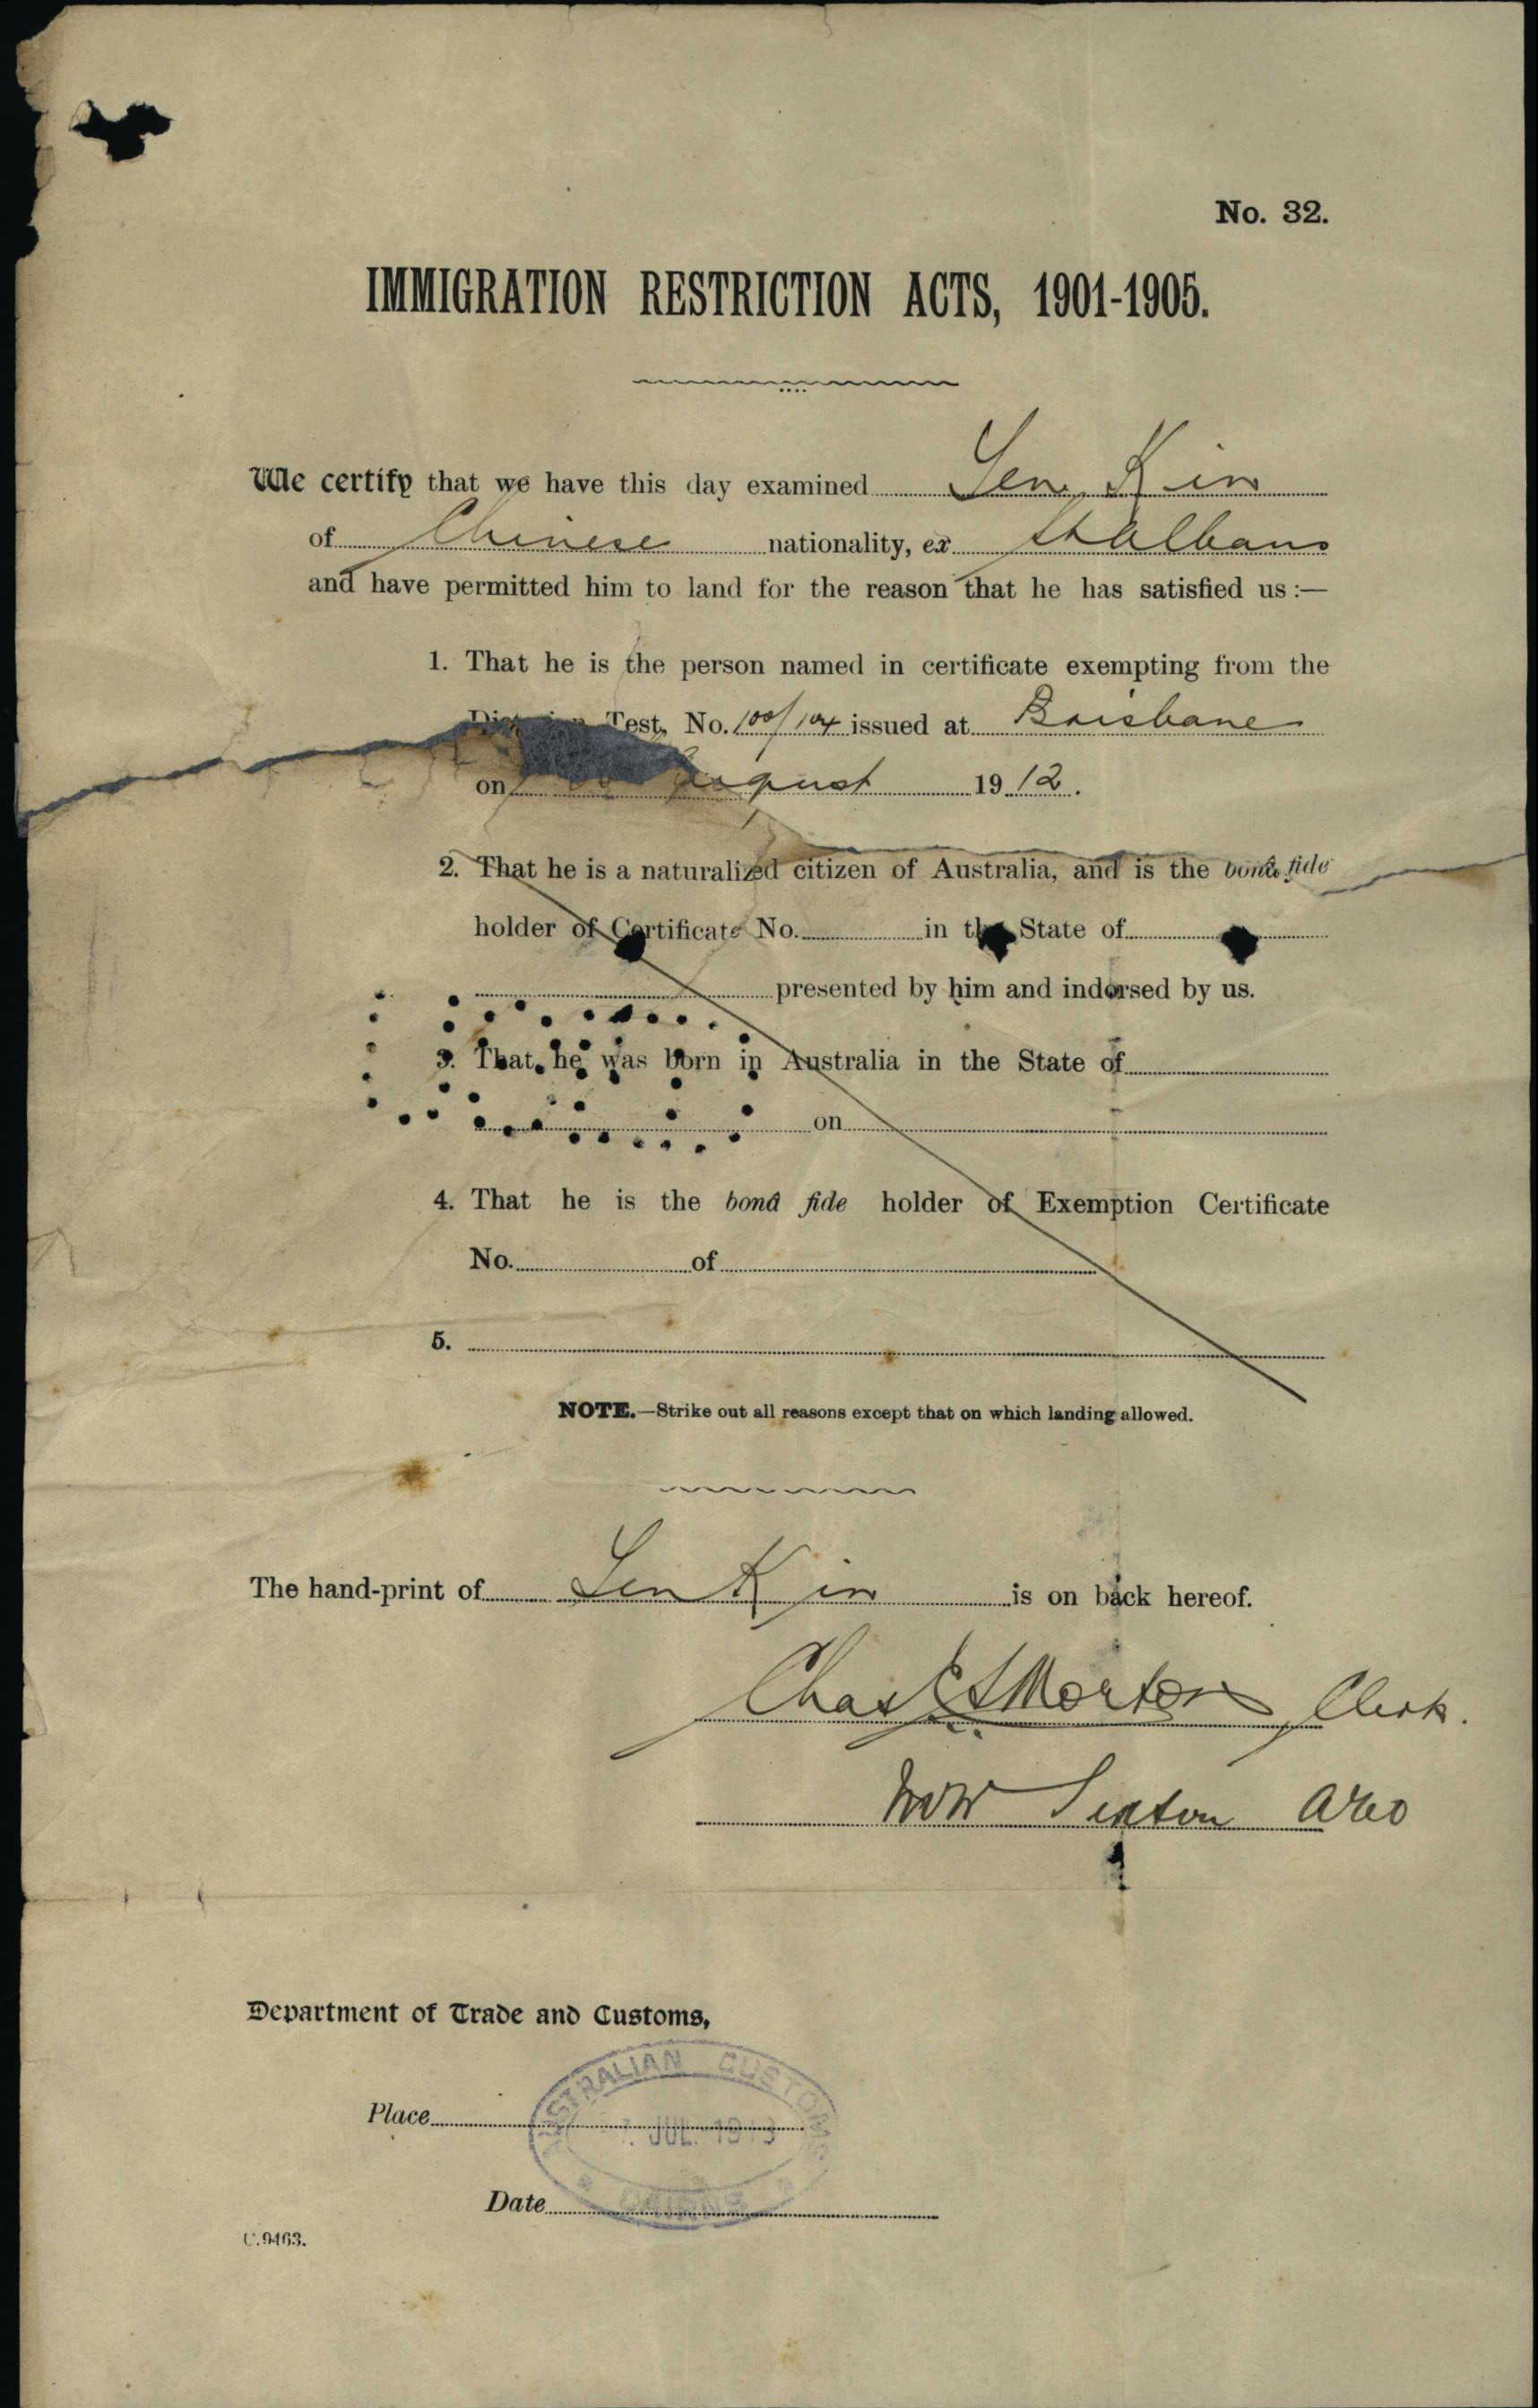 No. 32.
IMMIGRATION RESTRICTION ACTS, 1901-1905.
We certify that we have this day examined Sen Kin
of Chinese nationality, ex St Albans
and have permitted him to land for the reason that he has satisfied us:—
1. That he is the person named in certificate exempting from the
Test, No. 100/104 issued at Brisbane
on August 1912.
2. That he is a naturalized citizen of Australia, and is the bonâ fide
holder of Certificate No. in the State of
presented by him and indorsed by us.
3. That he was born in Australia in the State of
on
4. That he is the bonâ fide holder of Exemption Certificate
No. of
5.
NOTE.—Strike out all reasons except that on which landing allowed.
The hand-print of Sen Kin is on back hereof.
Chas Morton, Clerk.
Sexton
Department of Trade and Customs,
AUSTRALIAN CUSTOMS
Place
JUL. 1913
CAIRNS
Date
C.9463.